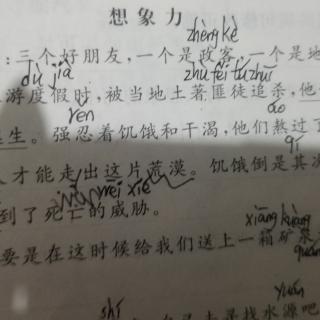 想象力
zhèng kè
：三个好朋友，一个是政客，一个是地
dù jià
zhù fěi tú zhuī
游度假时，被当地土著匪徒追杀，他
rěn
áo
生。强忍着饥饿和干渴，他们熬过了
才能走出这片荒漠。饥饿倒是其次
wēi xié
到了死亡的威胁。
xiāng kuàng
要是在这时候给我们送上一箱矿泉
quán
yuán
shǐ
是找水源吧